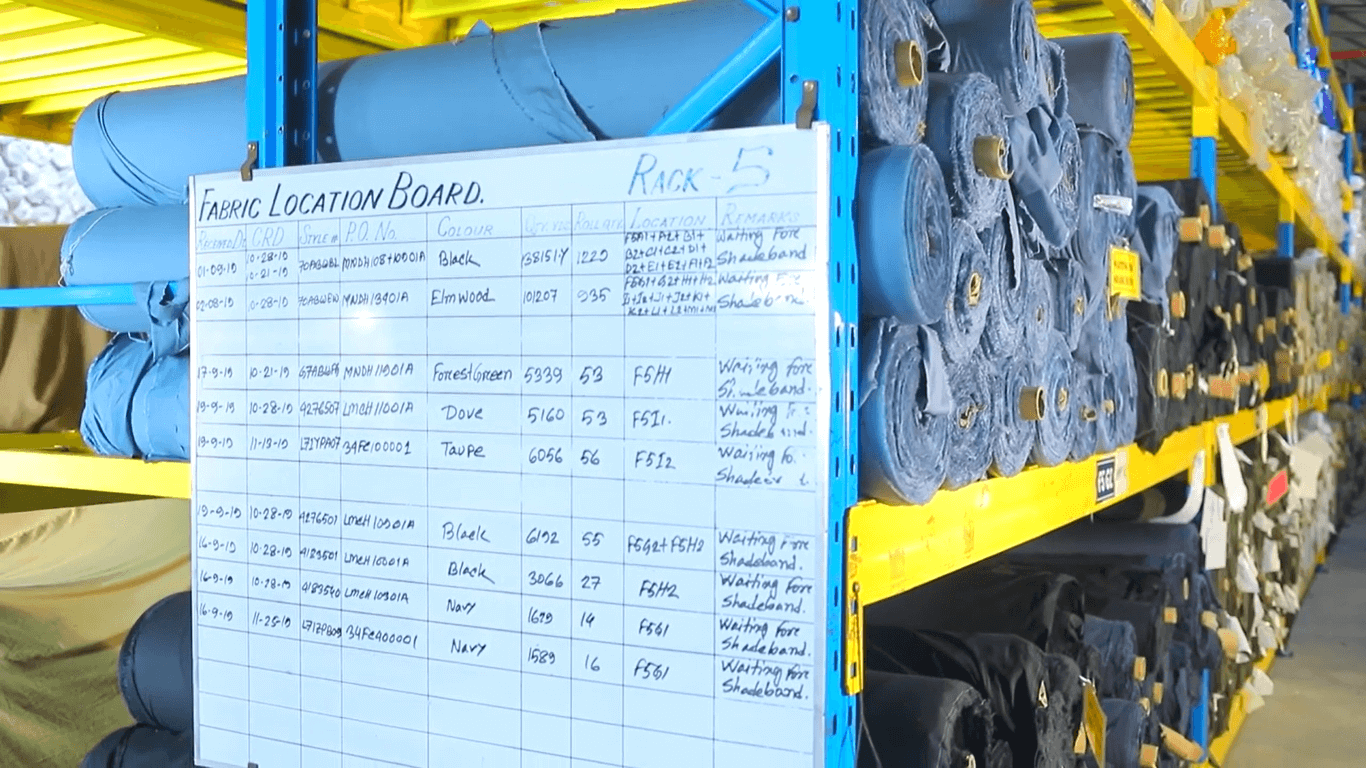 FABRIC LOCATION BOARD. RACK-5
CRD STYLE # P.O. No. COLOUR LOCATION REMARKS
01-09-19 10-28-19 Black 1220 Waiting Fore
10-21-19 Shadeband
02-08-19 10-28-19 MNDH13401A Elmwood 101207 935 Waiting Fore
Shadeband
17-9-19 10-21-19 MNDH11901A Forrest Green 5339 53 F5H1 Waiting fore
Shadeband.
19-9-19 10-28-19 4276507 LMCH11001A Dove 5160 53 F5I1. Waiting
19-9-19 11-13-19 34FC100001 Taupe 6056 56 F5I2 Waiting Fo.
19-9-19 10-28-19 4276501 LMCH10901A Black 6192 55 F5G2+F5H2 Waiting Fore
Shadeband.
16-9-19 10-28-19 4183501 LMCH10001A Black 3066 27 F5H2 Waiting Fore
Shadeband.
16-9-19 10-28-19 4183540 LMCH10901A Navy 1629 14 F5G1 Waiting Fore
Shadeband.
16-9-19 11-25-19 34FC400001 Navy 1589 16 F5G1 Waiting Fore
Shadeband.
F5 G2